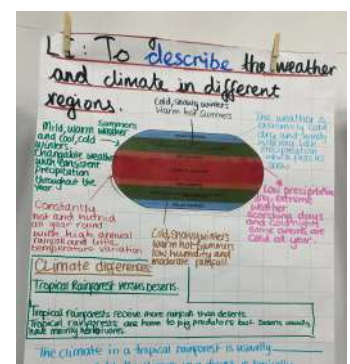 LI: To describe the weather
and climate in different
regions.
Cold, snowy winters
Warm hot Summers
Mild, warm Summers
and cool, cold weather
winters.
Changable weather
with consistent
Precipitation
throughout the
year
The weather is
extremely cold
dry and windy
with low
Precipitation
which falls as
snow
Low precipitation
dry, extreme
weather
scorching days
and cold nights
some deserts are
cold all year.
Constantly
hot and humid
all year round
with high annual
rainfall and little
temperature variation
Cold, snowy winters
warm hot summers
low humidity and
moderate rainfall
Climate differences:
Tropical Rainforest versus Deserts.
Tropical rainforests receive more rainfall than deserts.
Tropical rainforests are home to big predators but deserts usually
have mainly herbivores.
The climate in a tropical rainforest is usually